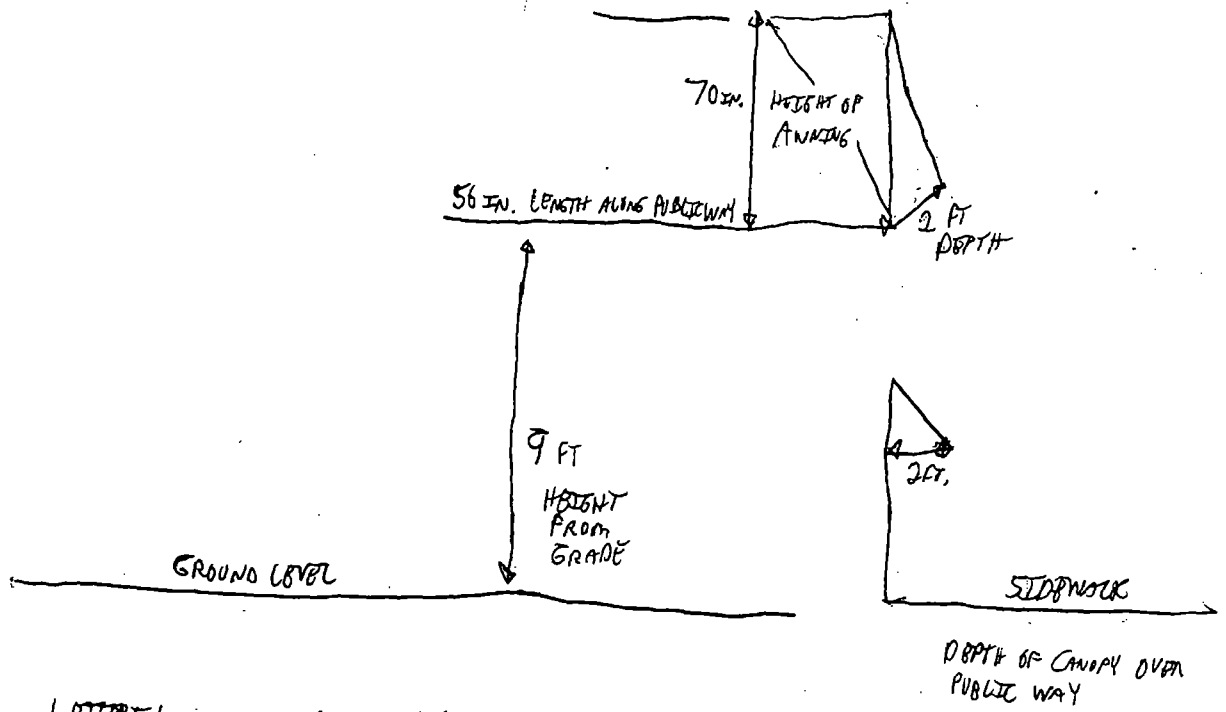 70 IN.
HEIGHT OF
AWNING
56 IN. LENGTH ALONG PUBLIC WAY
2 FT
DEPTH
9 FT
HEIGHT
FROM
GRADE
2 FT.
GROUND LEVEL
SIDEWALK
DEPTH OF CANOPY OVER
PUBLIC WAY